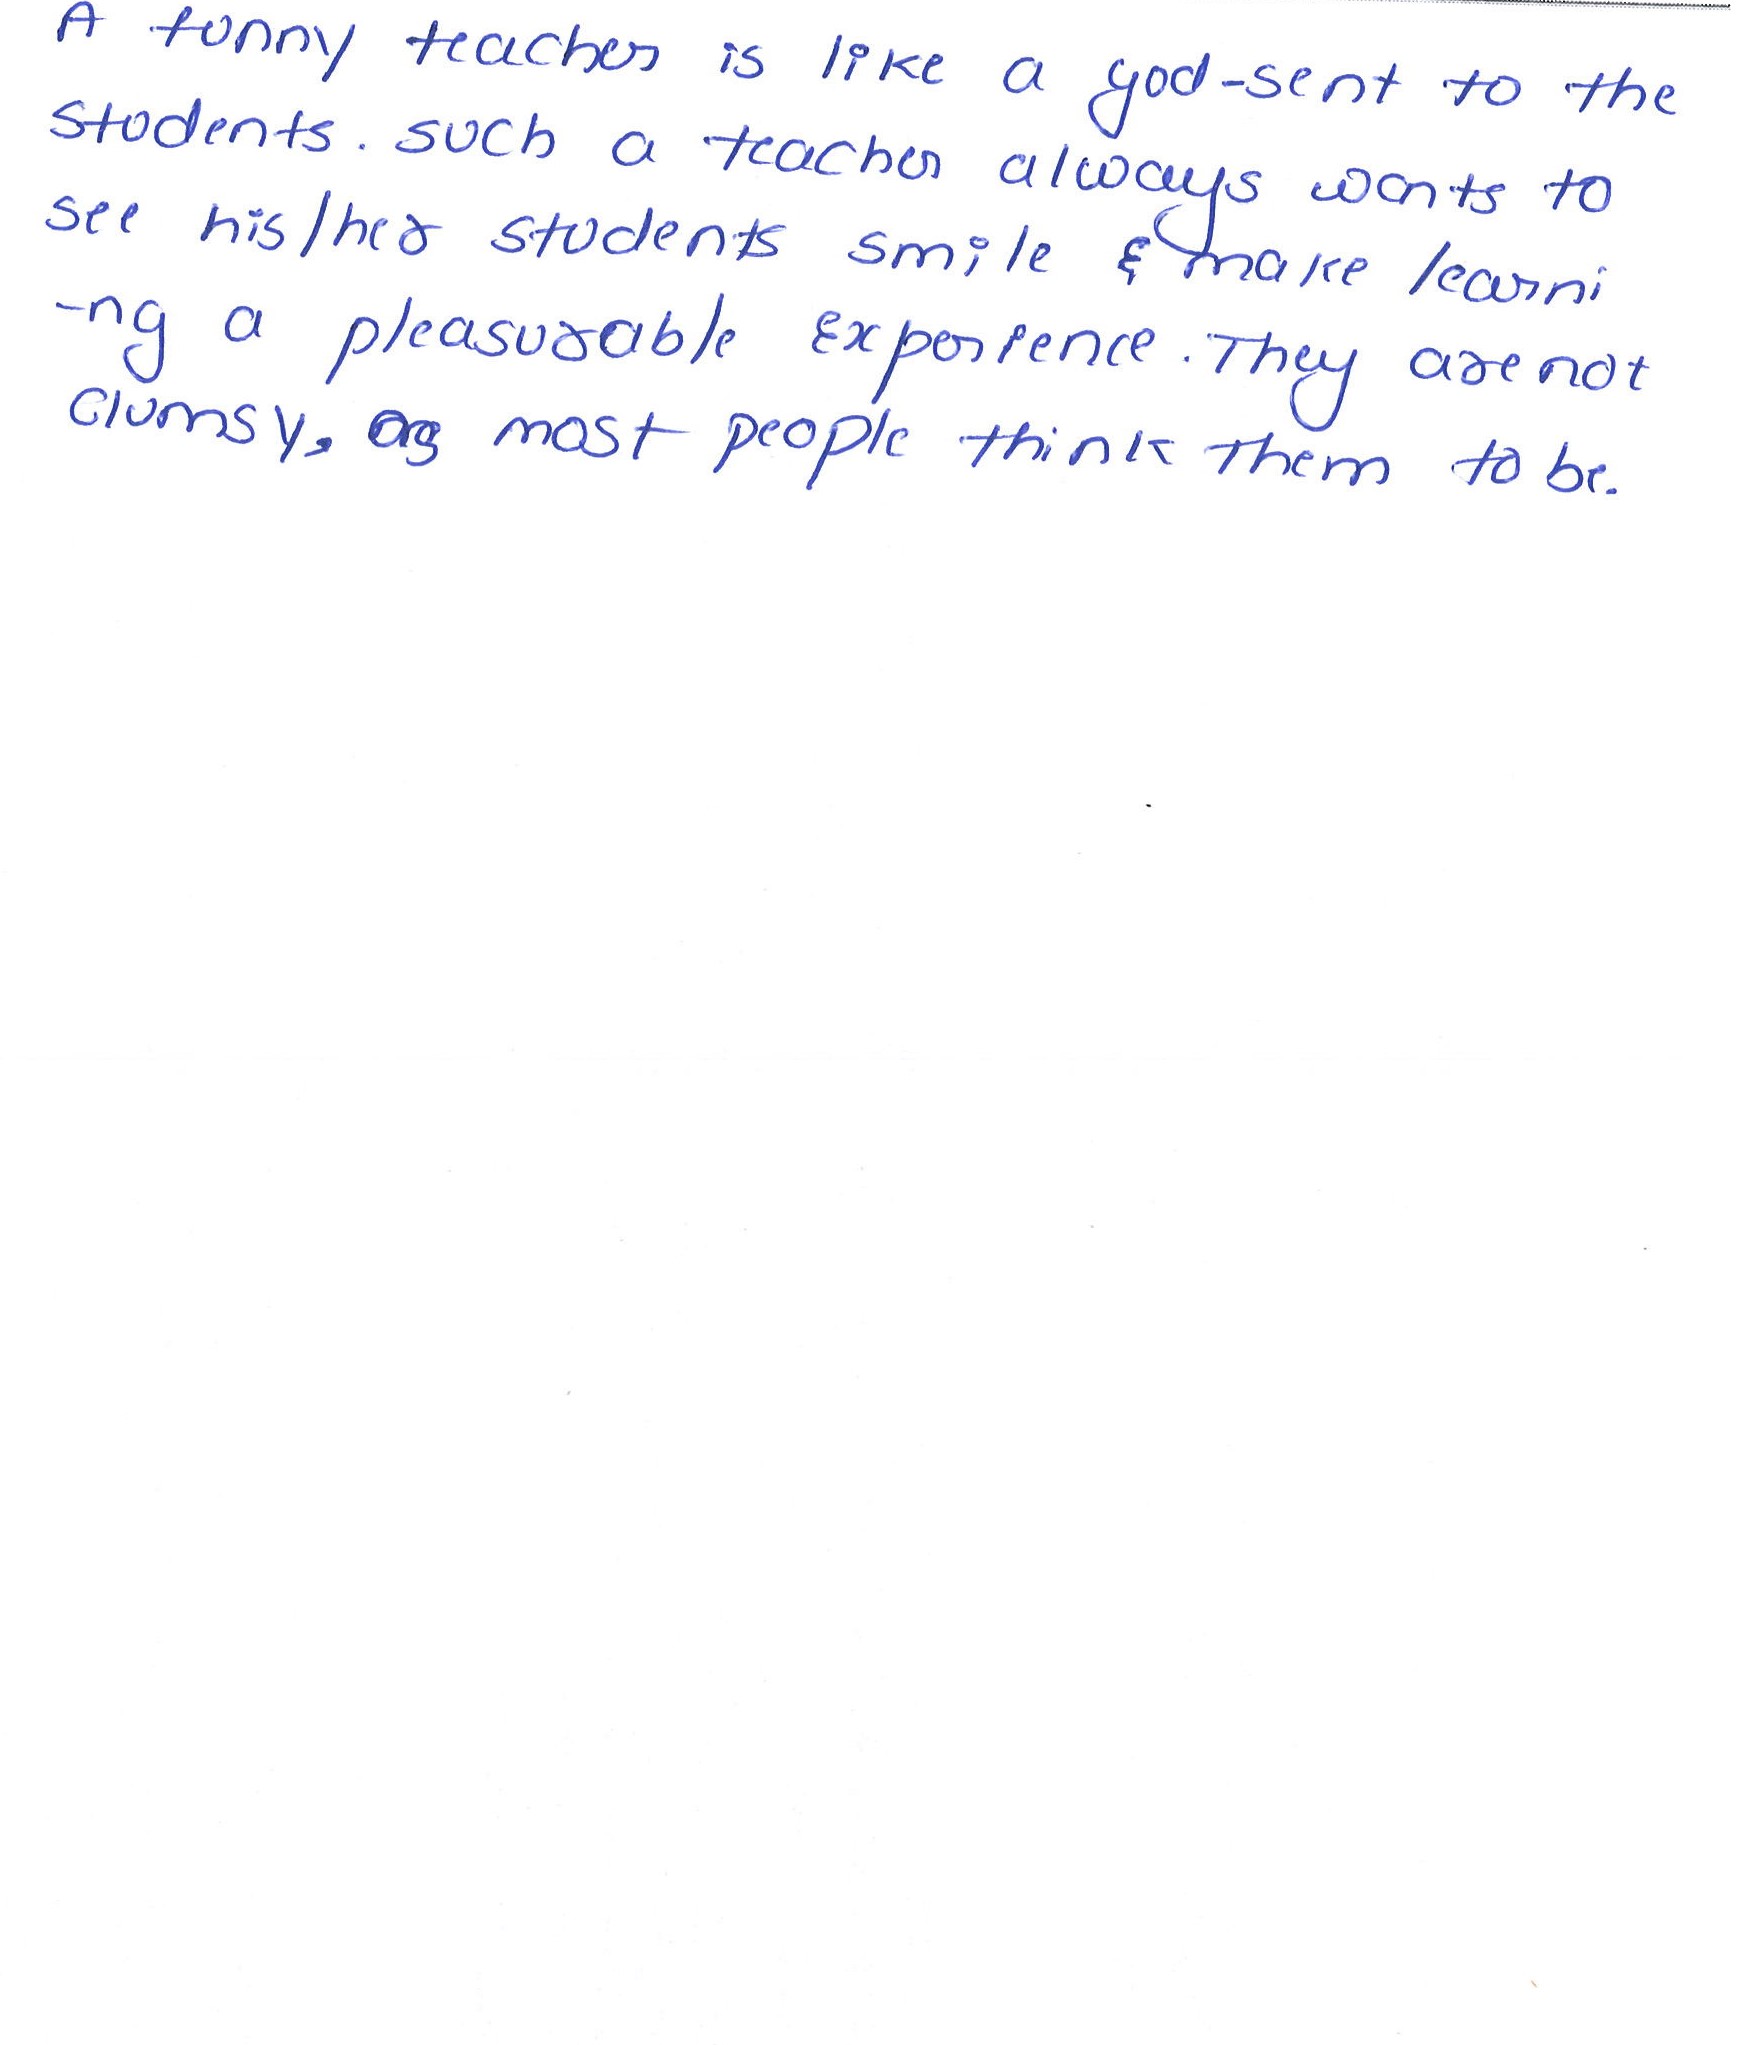 A funny teacher is like a god-sent to the
students. such a teacher always wants to
see his/her students smile & make learni
-ng a pleasurable experience. They are not
clumsy, as most people think them to be.